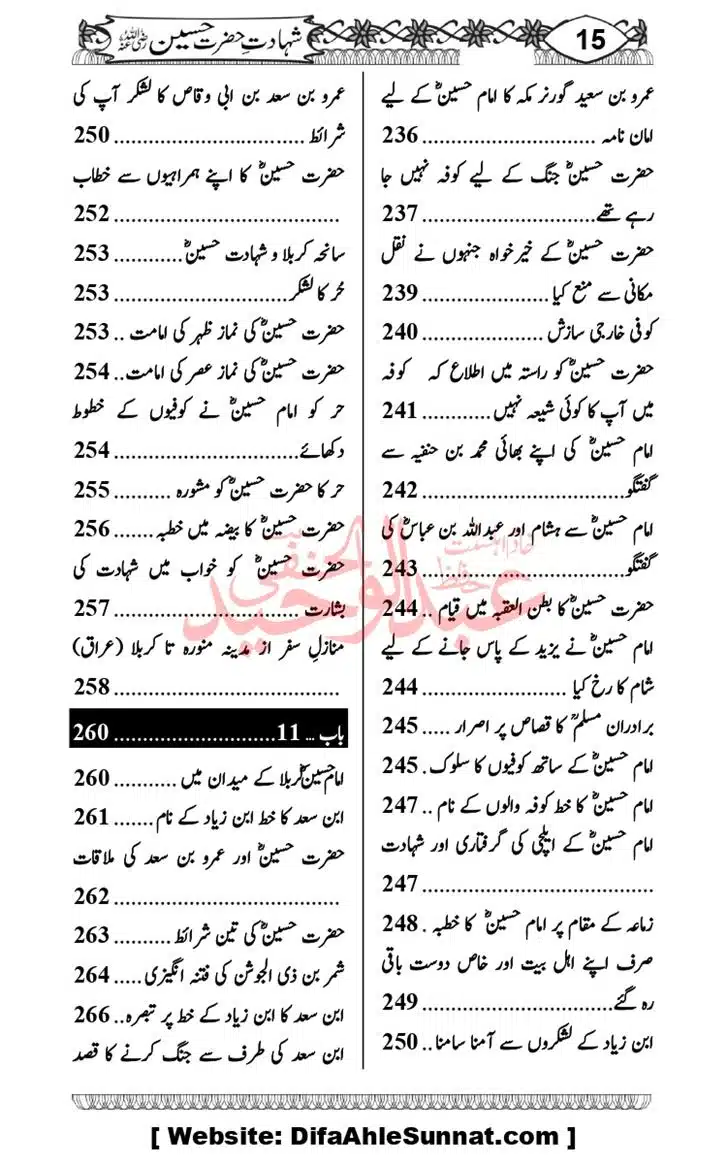 شہادتِ حضرت حسین رضی اللہ عنہ
15
عمرو بن سعید گورنر مکہ کا امام حسینؓ کے لیے
امان نامہ ............................ 236
حضرت حسینؓ جنگ کے لیے کوفہ نہیں جا
رہے تھے ............................ 237
حضرت حسینؓ کے خیرخواہ جنہوں نے نقل
مکانی سے منع کیا .................... 239
کوفی خارجی سازش .................... 240
حضرت حسینؓ کو راستہ میں اطلاع کہ کوفہ
میں آپ کا کوئی شیعہ نہیں ............ 241
امام حسینؓ کی اپنے بھائی محمد بن حنفیہ سے
گفتگو ................................ 242
امام حسینؓ سے ہشام اور عبداللہ بن عباسؓ کی
گفتگو ................................ 243
حضرت حسینؓ کا بطن العقبہ میں قیام .. 244
امام حسینؓ نے یزید کے پاس جانے کے لیے
شام کا رخ کیا ...................... 244
برادران مسلمؒ کا قصاص پر اصرار ..... 245
امام حسینؓ کے ساتھ کوفیوں کا سلوک . 245
امام حسینؓ کا خط کوفہ والوں کے نام .. 247
امام حسینؓ کے ایلچی کی گرفتاری اور شہادت
.................................... 247
زماعہ کے مقام پر امام حسینؓ کا خطبہ . 248
صرف اپنے اہل بیت اور خاص دوست باقی
رہ گئے .............................. 249
ابن زیاد کے لشکروں سے آمنا سامنا .. 250
عمرو بن سعد بن ابی وقاص کا لشکر آپ کی
شرائط .............................. 250
حضرت حسینؓ کا اپنے ہمراہیوں سے خطاب
.................................... 252
سانحہ کربلا و شہادت حسینؓ ............ 253
حُر کا لشکر .......................... 253
حضرت حسینؓ کی نماز ظہر کی امامت .. 253
حضرت حسینؓ کی نماز عصر کی امامت .. 254
حر کو امام حسینؓ نے کوفیوں کے خطوط
دکھائے .............................. 254
حر کا حضرت حسینؓ کو مشورہ .......... 255
حضرت حسینؓ کا بیضہ میں خطبہ ....... 256
حضرت حسینؓ کو خواب میں شہادت کی
بشارت .............................. 257
منازلِ سفر از مدینہ منورہ تا کربلا (عراق)
.................................... 258
باب ... 11 .......................... 260
امام حسینؓ کربلا کے میدان میں ........... 260
ابن سعد کا خط ابن زیاد کے نام ....... 261
حضرت حسینؓ اور عمرو بن سعد کی ملاقات
.................................... 262
حضرت حسینؓ کی تین شرائط .......... 263
شمر بن ذی الجوشن کی فتنہ انگیزی ..... 264
ابن سعد کا ابن زیاد کے خط پر تبصرہ .. 266
ابن سعد کی طرف سے جنگ کرنے کا قصد
خادم اہلسنت
حافظ عبدالوحید الحنفی
[ Website: DifaAhleSunnat.com ]